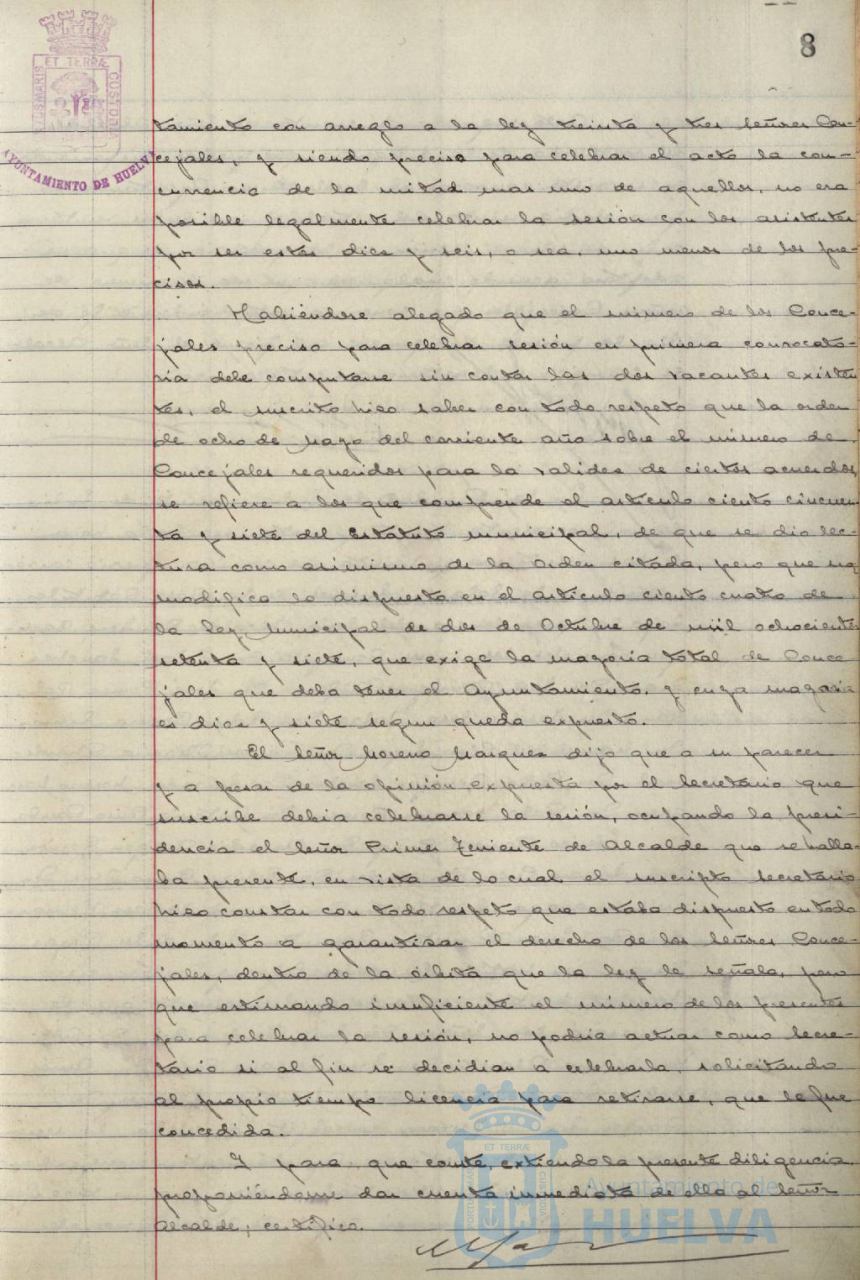 8
ET TERRÆ
CUSTODIA
AYUNTAMIENTO DE HUELVA
tamiento con arreglo a la ley treinta y tres señores Con-
cejales, y siendo preciso para celebrar el acto la con-
currencia de la mitad mas uno de aquellos, no era
posible legalmente celebrar la sesión con los asistentes
por ser estos diez y seis, o sea, uno menos de los pre-
cisos.
Habiéndose alegado que el número de los Conce-
jales preciso para celebrar sesión en primera convocato-
ria debe computarse sin contar las dos vacantes existen
tes, el suscrito hizo saber con todo respeto que la orden
de ocho de Mayo del corriente año sobre el número de
Concejales requeridos para la validez de ciertos acuerdos,
se refiere a los que comprende el artículo ciento cincuen
ta y siete del Estatuto municipal, de que se dio lec-
tura como asimismo de la Orden citada, pero que no
modifica lo dispuesto en el artículo ciento cuatro de
la Ley Municipal de dos de Octubre de mil ochocientos
setenta y siete, que exige la mayoria total de Conce-
jales que deba tener el Ayuntamiento, y cuya mayoria
es diez y siete segun queda expuesto.
El Señor Moreno Marquez dijo que a su parecer
y a pesar de la opinión expuesta por el Secretario que
suscribe debia celebrarse la sesión, ocupando la presi-
dencia el Señor Primer Teniente de Alcalde que se halla-
ba presente, en vista de lo cual el suscripto Secretario
hizo constar con todo respeto que estaba dispuesto en todo
momento a garantizar el derecho de los Señores Conce-
jales, dentro de la órbita que la ley le señala, pero
que estimando insuficiente el número de los presentes
para celebrar la sesión, no podria actuar como Secre-
tario si al fin se decidian a celebrarla, solicitando
al propio tiempo licencia para retirarse, que le fue
concedida.
Y para que conste, extiendo la presente diligencia
proponiéndome dar cuenta inmediata de ella al Señor
Alcalde; certifico.
ET TERRÆ
Ayuntamiento de
HUELVA